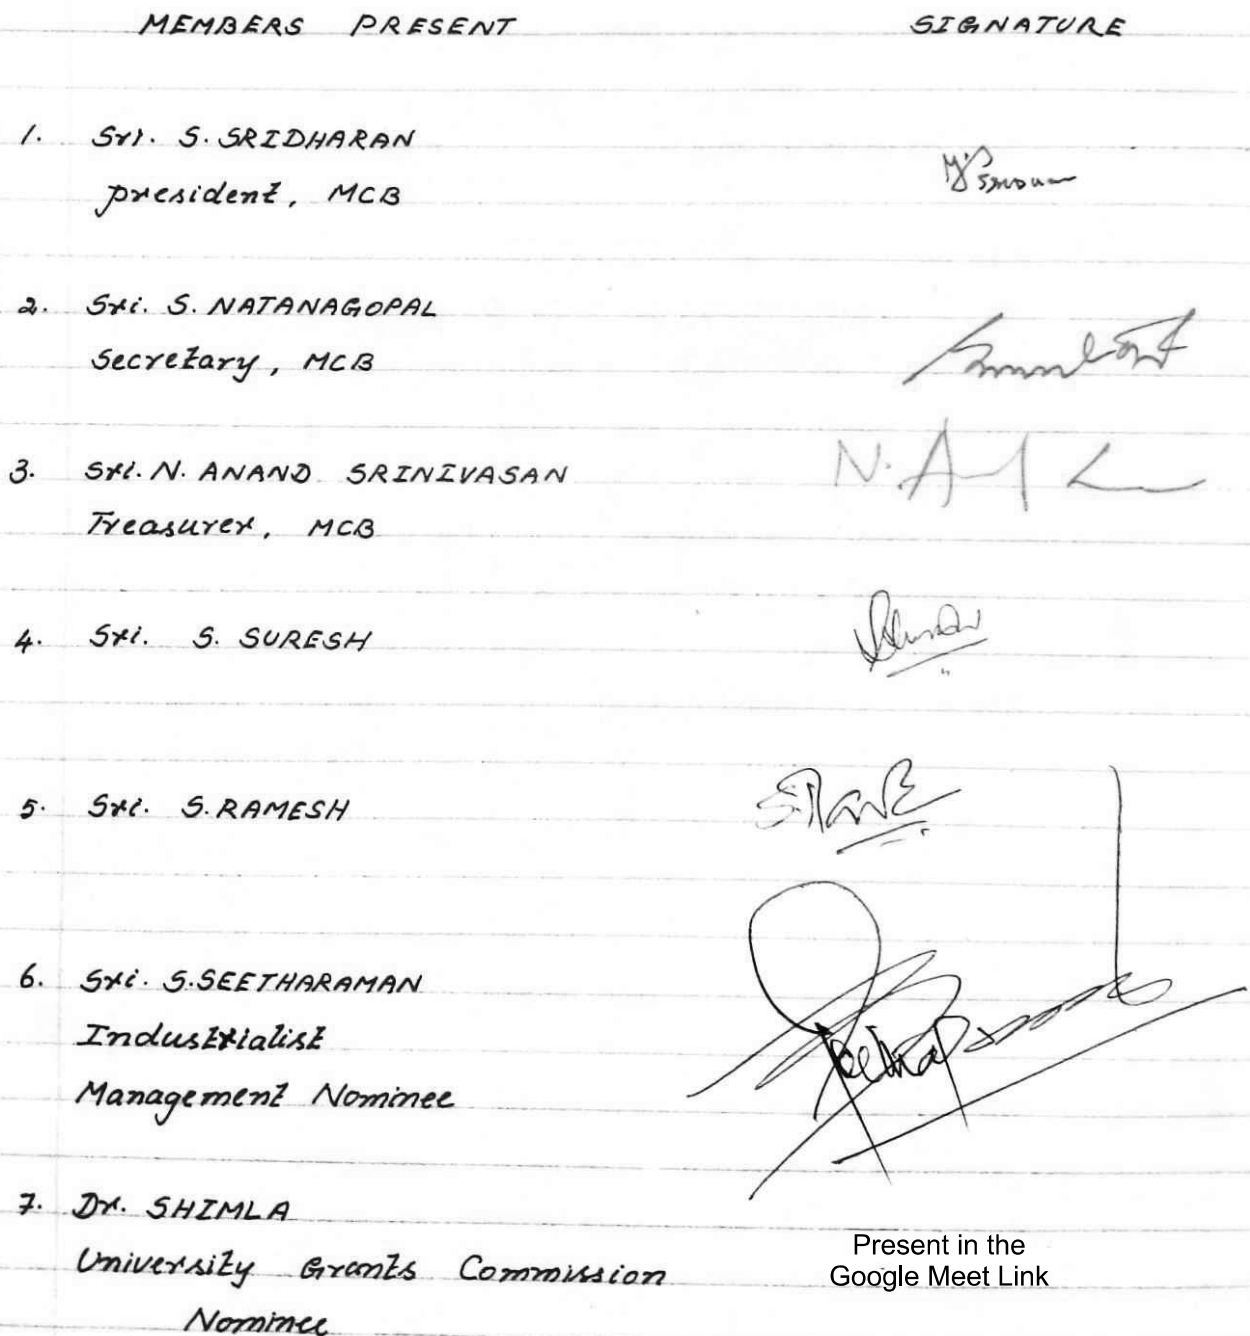 MEMBERS PRESENT SIGNATURE
1. Sri. S. SRIDHARAN
president, MCB
2. Sri. S. NATANAGOPAL
Secretary, MCB
3. Sri. N. ANAND SRINIVASAN
Treasurer, MCB
4. Sri. S. SURESH
5. Sri. S. RAMESH
6. Sri. S. SEETHARAMAN
Industrialist
Management Nominee
7. Dr. SHIMLA
University Grants Commission
Nominee
Present in the
Google Meet Link